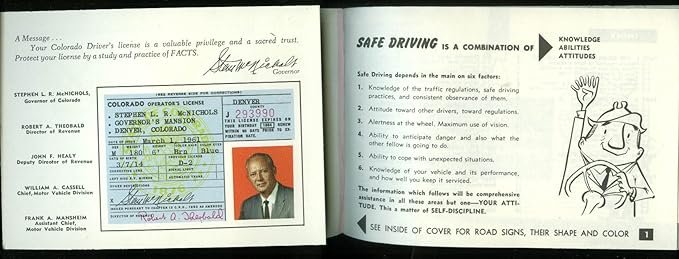 A Message . . .
Your Colorado Driver's license is a valuable privilege and a sacred trust.
Protect your license by a study and practice of FACTS.
Steve McNichols
Governor
STEPHEN L. R. McNICHOLS,
Governor of Colorado
ROBERT A. THEOBALD
Director of Revenue
JOHN F. HEALY
Deputy Director of Revenue
WILLIAM A. CASSELL
Chief, Motor Vehicle Division
FRANK A. MANSHEIM
Assistant Chief,
Motor Vehicle Division
(SEE REVERSE SIDE FOR RESTRICTIONS)
COLORADO OPERATOR'S LICENSE
DENVER
COUNTY
STEPHEN L. R. McNICHOLS
GOVERNOR'S MANSION
DENVER, COLORADO
J 293990
THIS LICENSE EXPIRES ON
YOUR BIRTHDAY 1964 RENEW
WITHIN 90 DAYS PRIOR TO EX-
PIRATION DATE
March 1, 1961
M 180 6' Brn Blue
DATE OF BIRTH
3/7/14 D-2
X Steve McNichols
DIRECTOR OF REVENUE
Robert A. Theobald
SAFE DRIVING IS A COMBINATION OF
KNOWLEDGE
ABILITIES
ATTITUDES
Safe Driving depends in the main on six factors:
1. Knowledge of the traffic regulations, safe driving
practices, and consistent observance of them.
2. Attitude toward other drivers, toward regulations.
3. Alertness at the wheel. Maximum use of vision.
4. Ability to anticipate danger and also what the
other fellow is going to do.
5. Ability to cope with unexpected situations.
6. Knowledge of your vehicle and its performance,
and how well you keep it serviced.
The information which follows will be comprehensive
assistance in all these areas but one—YOUR ATTI-
TUDE. This a matter of SELF-DISCIPLINE.
SEE INSIDE OF COVER FOR ROAD SIGNS, THEIR SHAPE AND COLOR
1